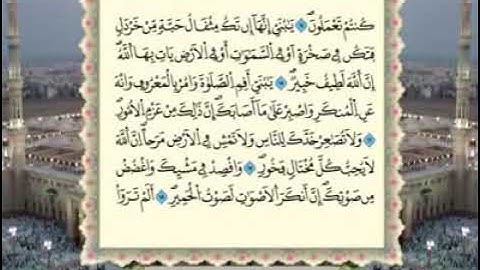 كُنتُمْ تَعْمَلُونَ يَٰبُنَيَّ إِنَّهَآ إِن تَكُ مِثْقَالَ حَبَّةٍ مِّنْ خَرْدَلٍ
فَتَكُن فِي صَخْرَةٍ أَوْ فِي السَّمَٰوَٰتِ أَوْ فِي الْأَرْضِ يَأْتِ بِهَا اللَّهُ
إِنَّ اللَّهَ لَطِيفٌ خَبِيرٌ يَٰبُنَيَّ أَقِمِ الصَّلَوٰةَ وَأْمُرْ بِالْمَعْرُوفِ وَانْهَ
عَنِ الْمُنكَرِ وَاصْبِرْ عَلَىٰ مَآ أَصَابَكَ إِنَّ ذَٰلِكَ مِنْ عَزْمِ الْأُمُورِ
وَلَا تُصَعِّرْ خَدَّكَ لِلنَّاسِ وَلَا تَمْشِ فِي الْأَرْضِ مَرَحًا إِنَّ اللَّهَ
لَا يُحِبُّ كُلَّ مُخْتَالٍ فَخُورٍ وَاقْصِدْ فِي مَشْيِكَ وَاغْضُضْ
مِن صَوْتِكَ إِنَّ أَنكَرَ الْأَصْوَٰتِ لَصَوْتُ الْحَمِيرِ أَلَمْ تَرَوْا